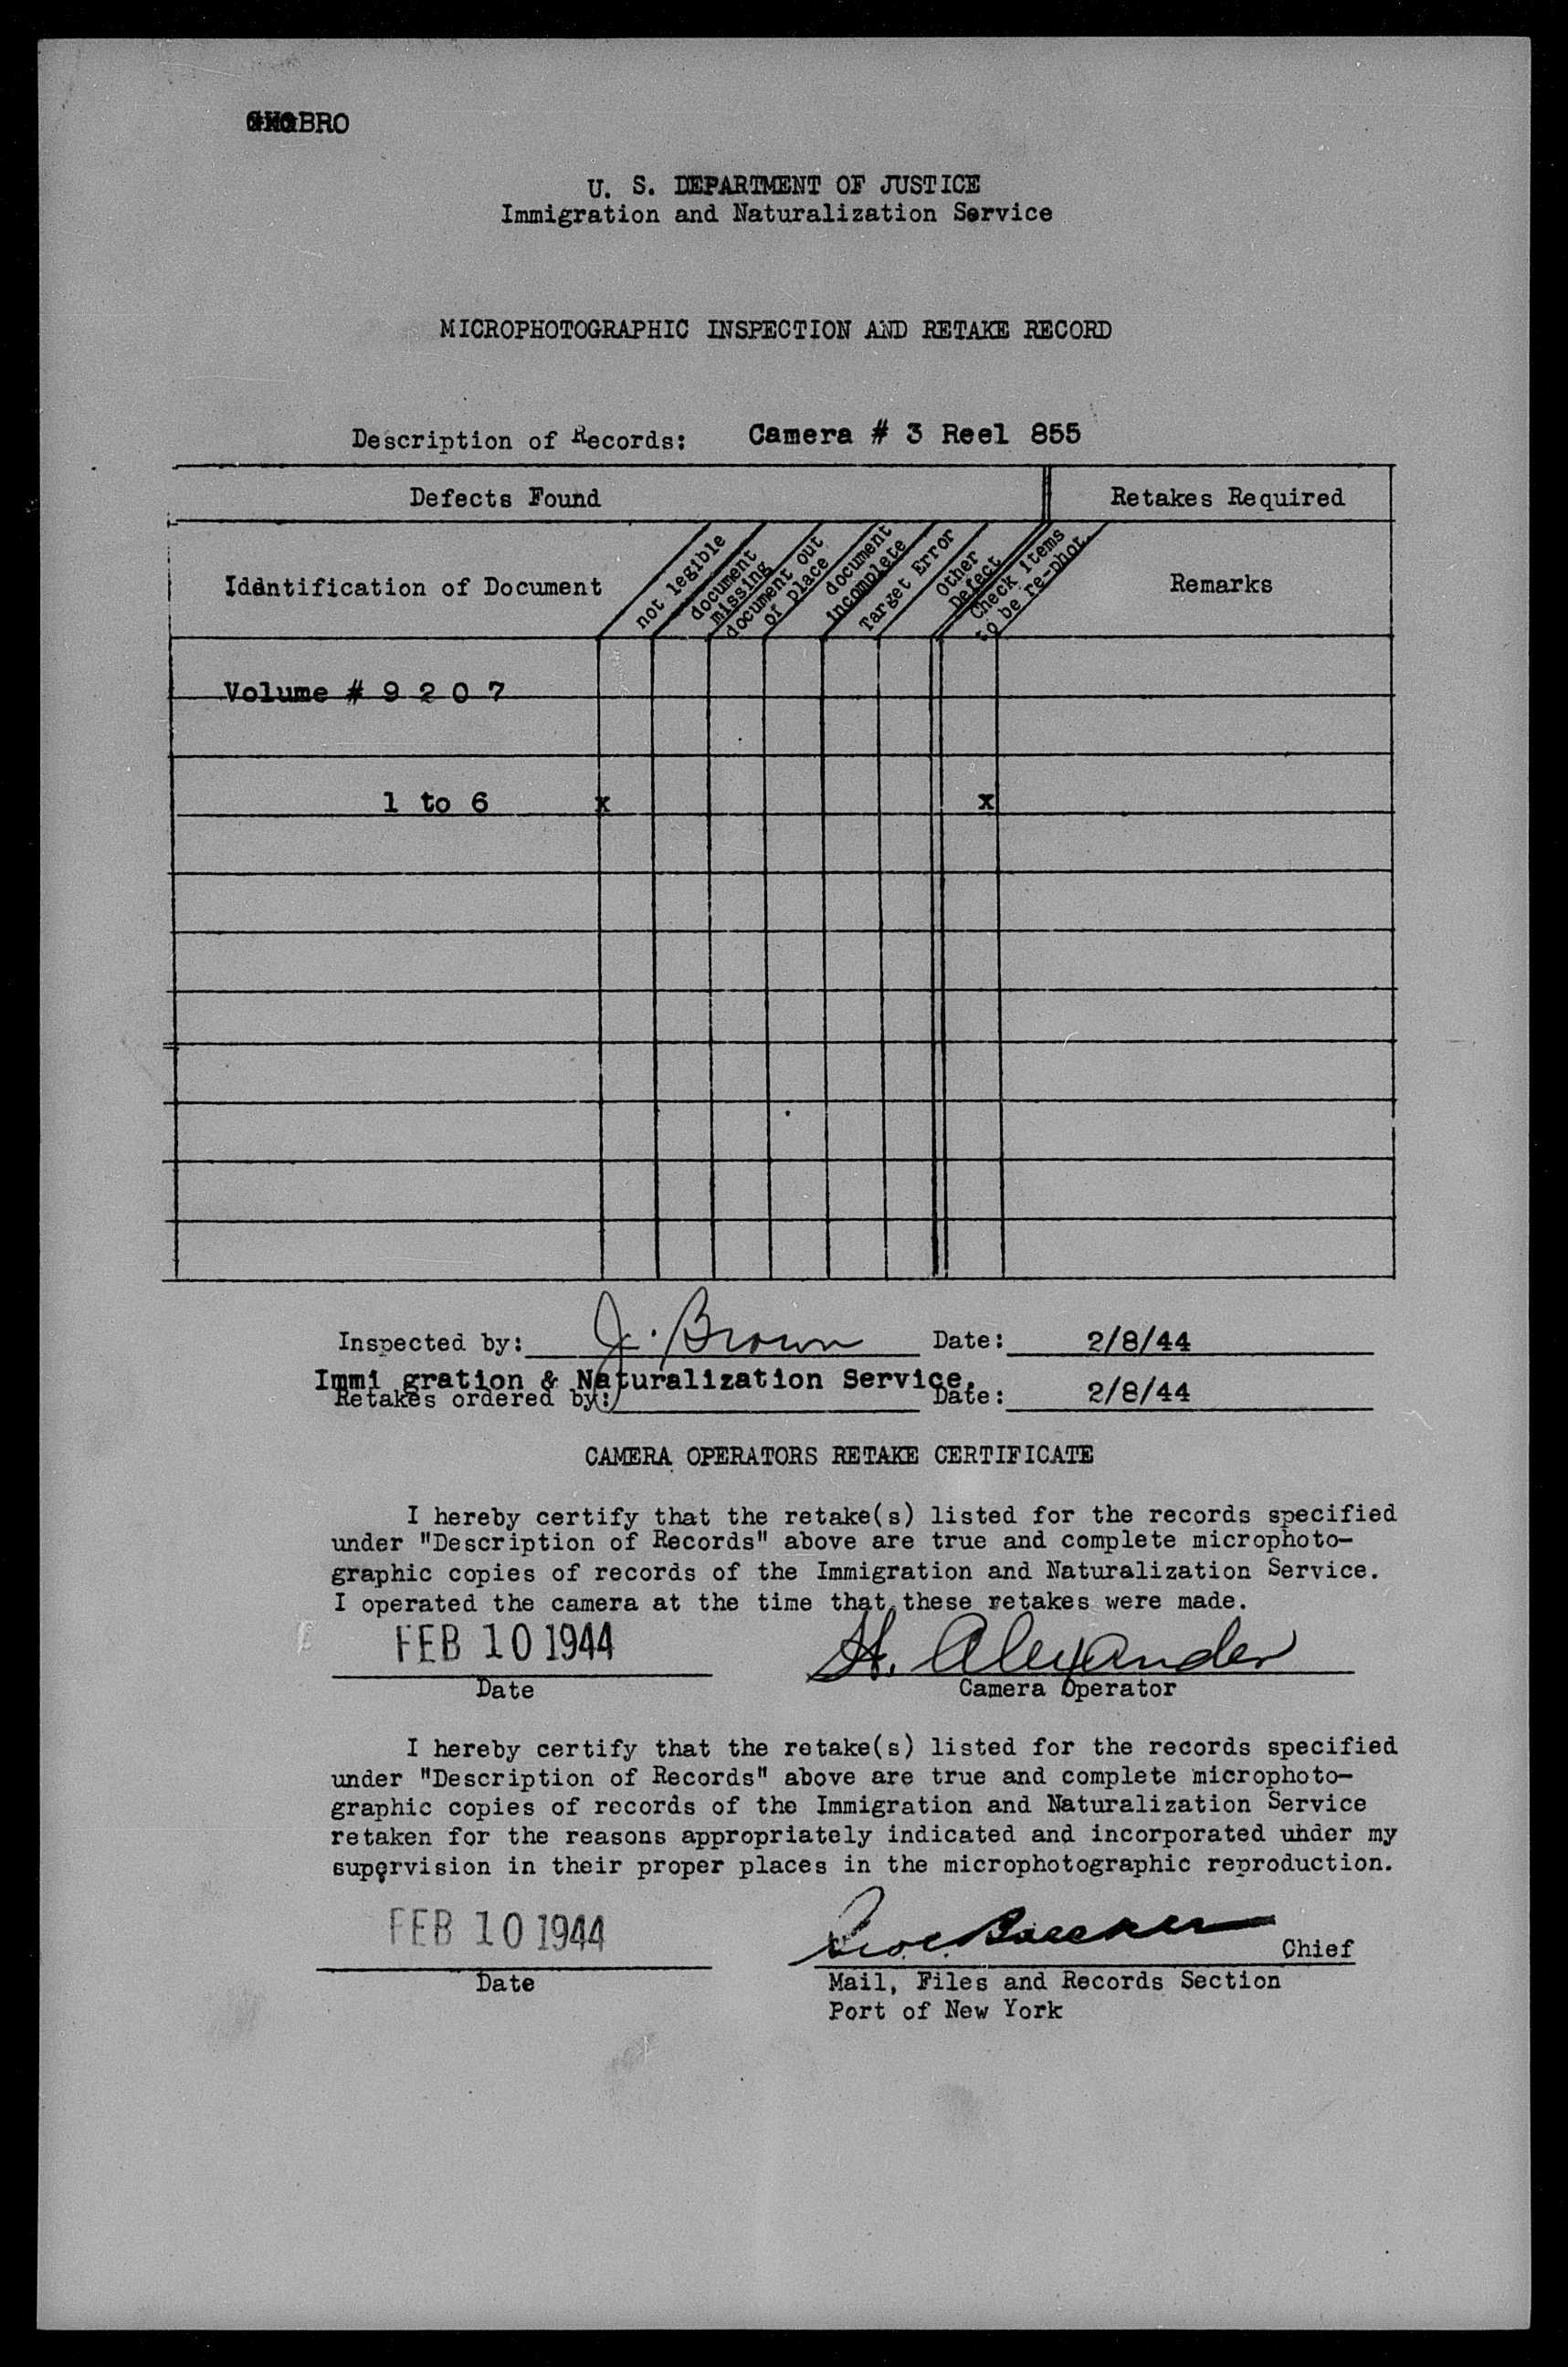 BRO
U. S. DEPARTMENT OF JUSTICE
Immigration and Naturalization Service
MICROPHOTOGRAPHIC INSPECTION AND RETAKE RECORD
Description of Records: Camera # 3 Reel 855
Defects Found
Retakes Required
Identification of Document
not legible
document
missing
document out
of place
document
incomplete
Target Error
Other
Defect
Check Items
to be re-phot.
Remarks
Volume # 9 2 0 7
1 to 6 x x
Inspected by: J. Brown Date: 2/8/44
Immi gration & Naturalization Service.
Retakes ordered by: Date: 2/8/44
CAMERA OPERATORS RETAKE CERTIFICATE
I hereby certify that the retake(s) listed for the records specified
under "Description of Records" above are true and complete microphoto-
graphic copies of records of the Immigration and Naturalization Service.
I operated the camera at the time that these retakes were made.
FEB 10 1944 H. Alexander
Date Camera Operator
I hereby certify that the retake(s) listed for the records specified
under "Description of Records" above are true and complete microphoto-
graphic copies of records of the Immigration and Naturalization Service
retaken for the reasons appropriately indicated and incorporated under my
supervision in their proper places in the microphotographic reproduction.
FEB 10 1944 Chief
Date Mail, Files and Records Section
Port of New York